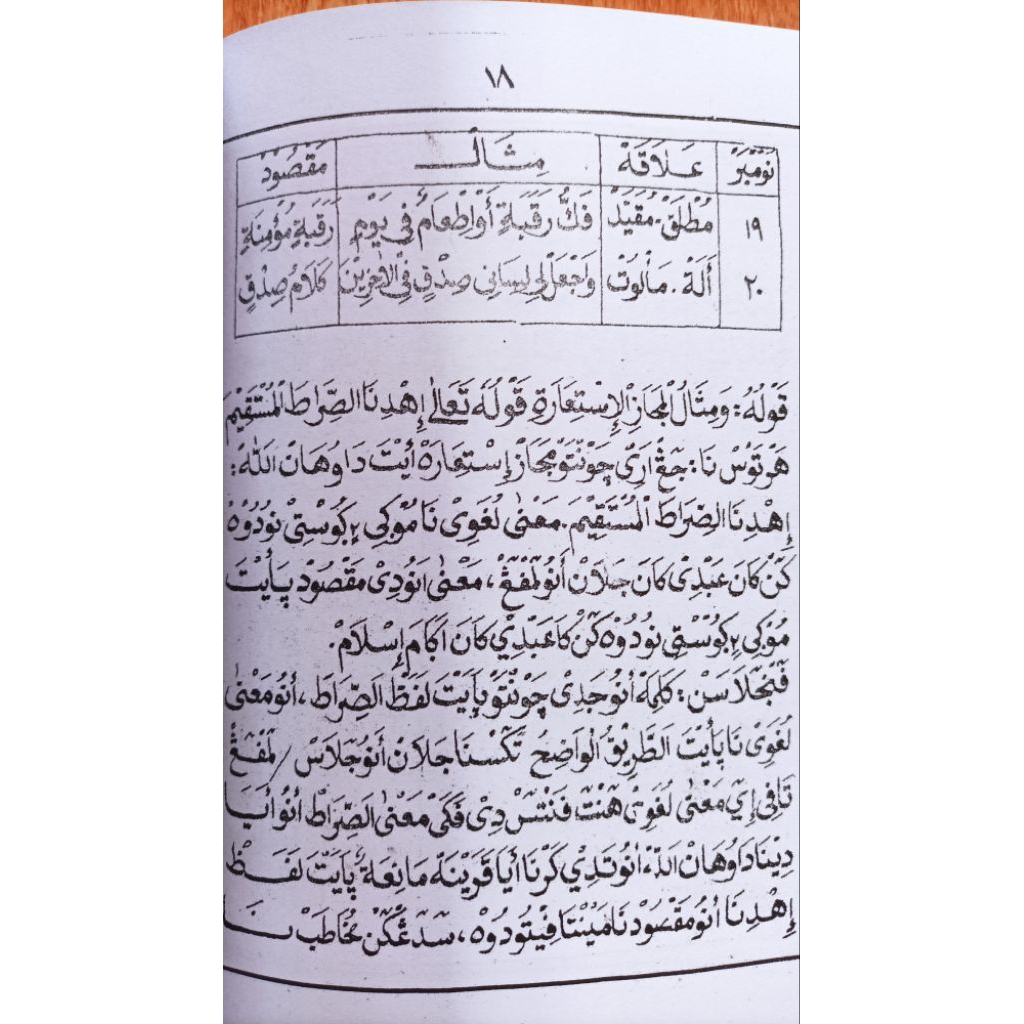 ١٨
نَوْمْبَرْ عَلَاقَةْ مِثَالْ مَقْصُوْدْ
١٩ مُطْلَقْ. مُقَيَّدْ فَكُّ رَقَبَةٍ أَوْ اِطْعَامٌ فِي يَوْمٍ رَقَبَةٍ مُؤْمِنَةٍ
٢٠ أَلَةْ. مَالُوتْ وَاجْعَلْ لِي لِسَانَ صِدْقٍ فِي الْاٰخِرِيْنَ كَلَامُ صِدْقٍ
قَوْلُهُ: وَمِثَالُ الْمَجَازِ الْاِسْتِعَارَةِ قَوْلُهُ تَعَالٰى اِهْدِنَا الصِّرَاطَ الْمُسْتَقِيْمَ
هَرْتَوْسْ نَا: جَڠْ اَرِيْ چَوْنْتَوْ مَجَازْ اِسْتِعَارَةْ أَيْتْ دَاوُهَانْ اَللّٰهْ:
اِهْدِنَا الصِّرَاطَ الْمُسْتَقِيْمَ. مَعْنٰى لُغَوِيْ نَا مُوْكِي ٢ ݢُوْسْتِيْ نُوْدُوْهْ
كَنْ كَانْ عَبْدِيْ كَانْ جَلَانْ أَنُوْ لَمْفَڠْ، مَعْنٰى اَنُوْدِيْ مَقْصُوْدْ يَاأَيْتْ
مُوْكِي ٢ ݢُوْسْتِيْ نُوْدُوْهْ كَنْ كَا عَبْدِيْ كَانَ اَݢَامَ اِسْلَامْ.
فَنْجَلَاسَنْ: كَلِمَةْ أَنُوْجَدِيْ چَوْنْتَوْ يَاأَيْتْ لَفَظْ اَلصِّرَاطَ، أَنُوْ مَعْنٰى
لُغَوِيْ نَا يَاأَيْتْ اَلطَّرِيْقُ الْوَاضِحُ تَݢَسْنَا جَلَانْ أَنُوْ جَلَاسْ / لَمْفَڠْ
تَافِي اِيْ مَعْنٰى لُغَوِيْ هَنْتْ فَنْتَسْ دِيْ فَكَيْ مَعْنٰى اَلصِّرَاطْ أَنُوْ أَيَا
دِيْنَا دَاوُهَانْ اَللّٰهْ، أَنُوْ تَدِيْ كَرْنَا أَيَا قَرِيْنَةْ مَانِعَةْ يَاأَيْتْ لَفَظْ
اِهْدِنَا أَنُوْ مَقْصُوْدْنَا مَيْنْتَا فِيْتُوْدُوْهْ، سَدَڠْكَنْ مُخَاطَبْ نَا